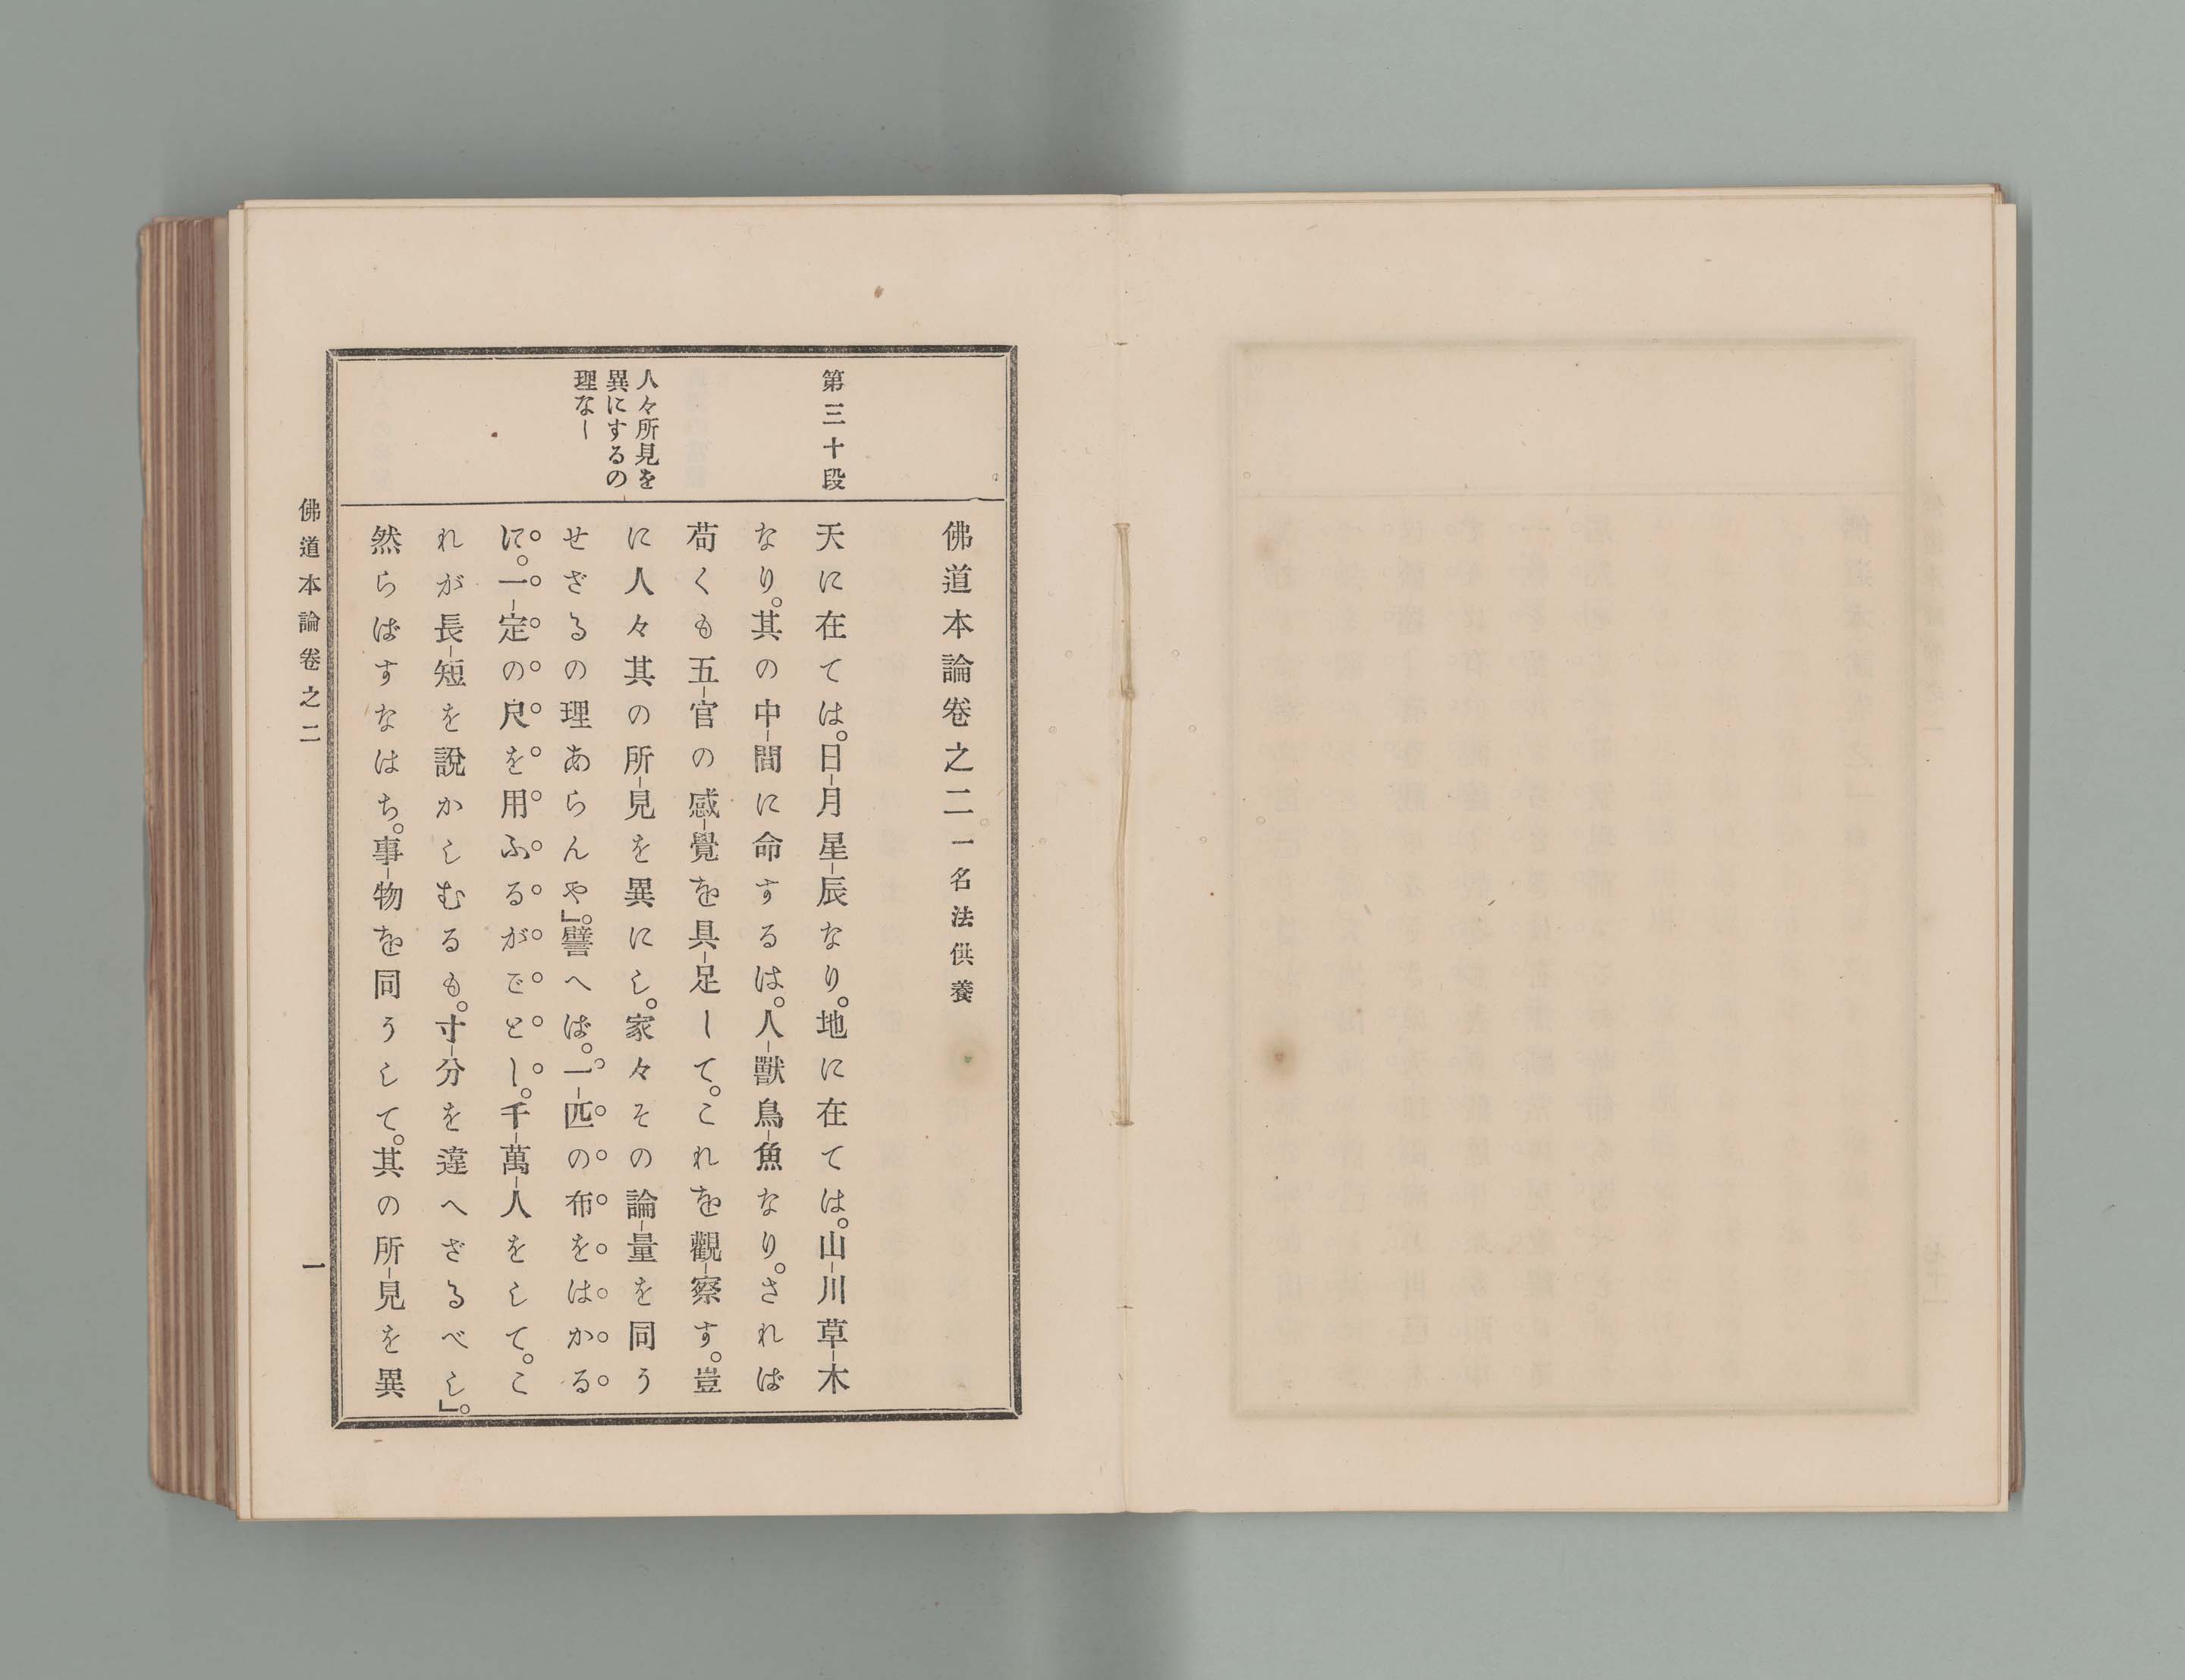 佛道本論卷之二 一名法供養
第三十段
天に在ては。日–月星–辰なり。地に在ては。山–川草–木
なり。其の中–間に命するは。人–獸鳥–魚なり。されば
苟くも五–官の感–覺を具–足して。これを觀–察す。豈
人々所見を
異にするの
理なし
に人々其の所–見を異にし。家々その論–量を同う
せざるの理あらんや』。譬へば。一–匹の布をはかる
に。一–定の尺を用ふるがごとし。千–萬–人をして。こ
れが長–短を說かしむるも。寸–分を違へざるべし』。
然らばすなはち。事–物を同うして。其の所–見を異
佛道本論卷之二
一